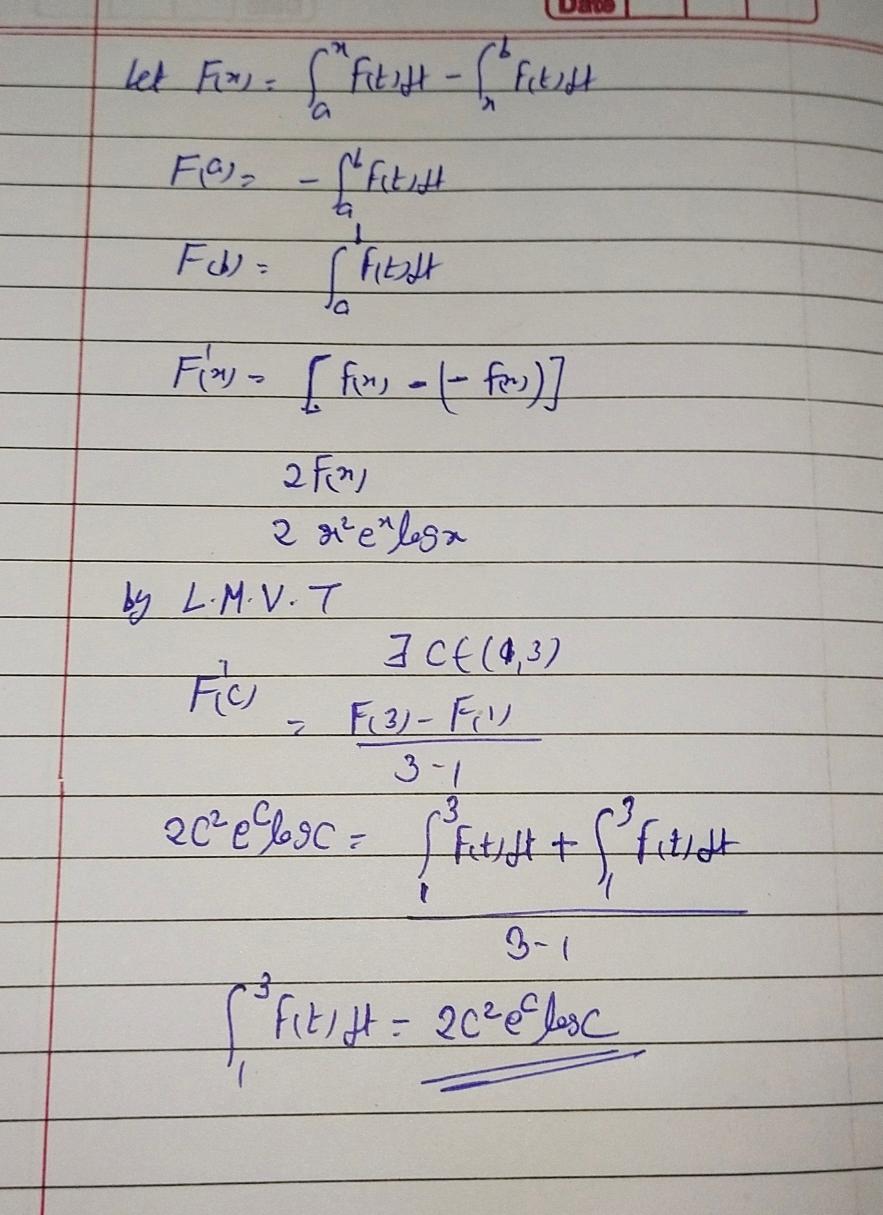 Date
Let F(x) = ∫ₐˣ f(t)dt - ∫ₓᵇ f(t)dt
F(a) = - ∫ₐᵇ f(t)dt
F(b) = ∫ₐᵇ f(t)dt
F'(x) = [f(x) - (- f(x))]
2 f(x)
2 x²eˣ log x
by L.M.V.T
∃ C ∈ (1,3)
F'(C) = F(3) - F(1)
3-1
2C²eᶜ log C = ∫₁³ f(t)dt + ∫₁³ f(t)dt
3-1
∫₁³ f(t)dt = 2C²eᶜ log C